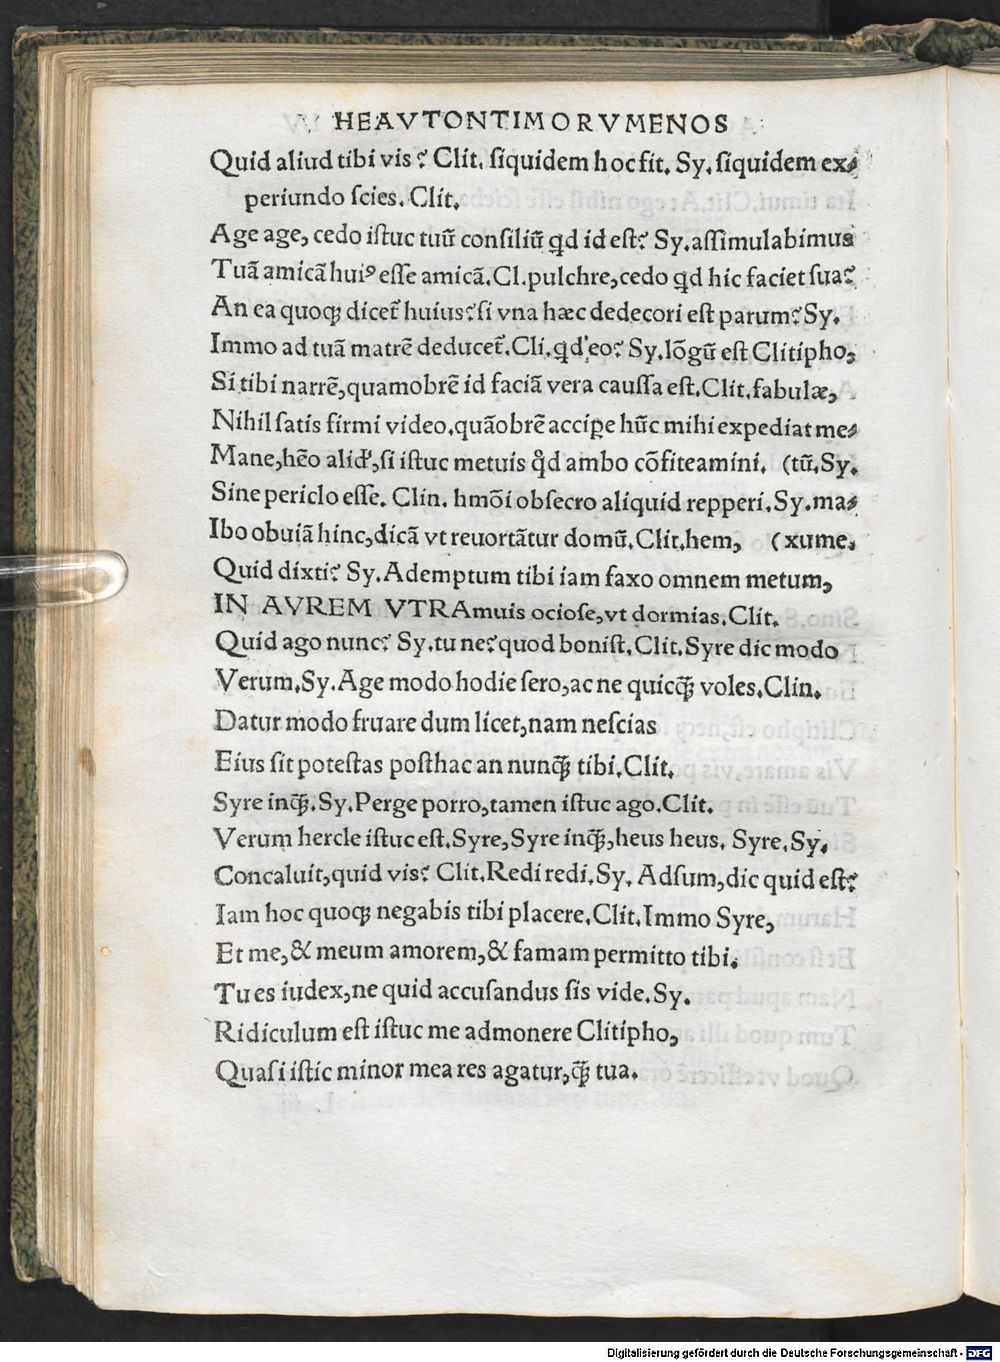 HEAVTONTIMORVMENOS
Quid aliud tibi vis? Clit. siquidem hoc fit. Sy. siquidem ex⸗
periundo scies. Clit.
Age age, cedo istuc tuū consiliū qd id est? Sy. assimulabimus
Tuā amicā huiꝰ esse amicā. Cl. pulchre, cedo qd hic faciet sua?
An ea quoqꝫ dicet̃ huius? si vna hæc dedecori est parum? Sy.
Immo ad tuā matrē deducet̃. Cli. qd' eo? Sy. lōgū est Clitipho,
Si tibi narrē, quamobrē id faciā vera caussa est. Clit. fabulæ,
Nihil satis firmi video, quāobrē accipe hūc mihi expediat me⸗
Mane, hēo alid', si istuc metuis qd̊ ambo cōfiteamini. (tū. Sy.
Sine periclo esse. Clin. hmōi obsecro aliquid repperi. Sy. ma⸗
Ibo obuiā hinc, dicā vt reuortātur domū. Clit. hem, (xume.
Quid dixti? Sy. Ademptum tibi iam faxo omnem metum,
IN AVREM VTRAmuis ociose, vt dormias. Clit.
Quid ago nunc? Sy. tu ne? quod bonist. Clit. Syre dic modo
Verum. Sy. Age modo hodie sero, ac ne quicq̄ꝫ voles. Clin.
Datur modo fruare dum licet, nam nescias
Eius sit potestas posthac an nunq̄ꝫ tibi. Clit.
Syre inq̄ꝫ. Sy. Perge porro, tamen istuc ago. Clit.
Verum hercle istuc est. Syre, Syre inq̄ꝫ, heus heus. Syre. Sy.
Concaluit, quid vis? Clit. Redi redi. Sy. Adsum, dic quid est?
Iam hoc quoqꝫ negabis tibi placere. Clit. Immo Syre,
Et me, & meum amorem, & famam permitto tibi.
Tu es iudex, ne quid accusandus sis vide. Sy.
Ridiculum est istuc me admonere Clitipho,
Quasi istic minor mea res agatur, q̄ꝫ tua.
Digitalisierung gefördert durch die Deutsche Forschungsgemeinschaft - DFG